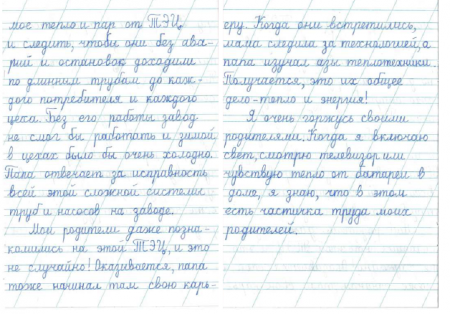 мое тепло и пар от ТЭЦ,
и следит, чтобы они без ава-
рий и остановок доходили
по длинным трубам до каж-
дого потребителя и каждого
цеха. Без его работы завод
не смог бы работать и зимой
в цехах было бы очень холодно.
Папа отвечает за исправность
всей этой сложной системы
труб и насосов на заводе.
Мои родители даже позна-
комились на этой ТЭЦ, и это
не случайно! Оказывается, папа
тоже начинал там свою карь-
еру. Когда они встретились,
мама следила за технологией, а
папа изучал азы теплотехники.
Получается, это их общее
дело-тепло и энергия!
Я очень горжусь своими
родителями. Когда я включаю
свет, смотрю телевизор или
чувствую тепло от батареи в
доме, я знаю, что в этом
есть частичка труда моих
родителей.